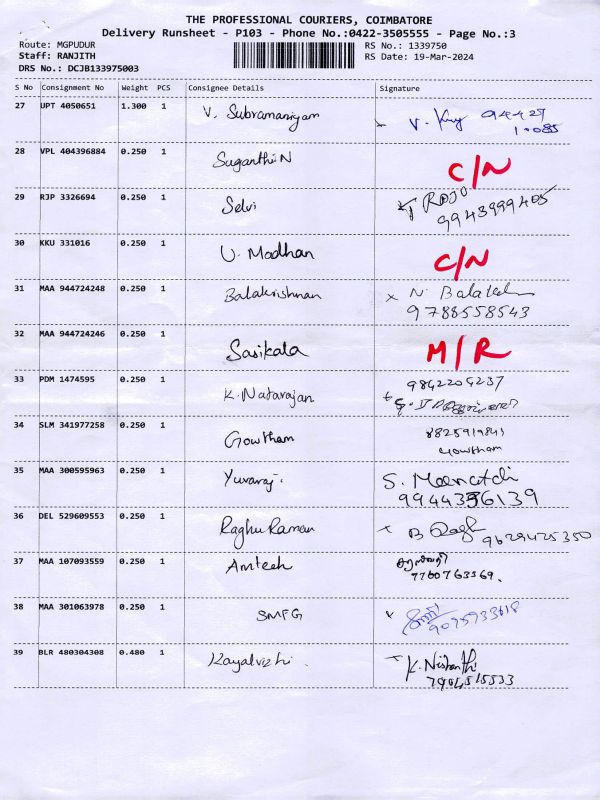 THE PROFESSIONAL COURIERS, COIMBATORE
Delivery Runsheet - P103 - Phone No.:0422-3505555 - Page No.:3
Route: MGPUDUR RS No.: 1339750
Staff: RANJITH RS Date: 19-Mar-2024
DRS No.: DCJB133975003
S No Consignment No Weight PCS Consignee Details Signature
27 UPT 4050651 1.300 1 V. Subramaniyam 94427
10085
28 VPL 404396884 0.250 1 Suganthi N C/N
29 RJP 3326694 0.250 1 Selvi RAJU
9943999405
30 KKU 331016 0.250 1 U. Madhan C/N
31 MAA 944724248 0.250 1 Balakrishnan x N. Balakrishnan
9788558543
32 MAA 944724246 0.250 1 Sasikala M/R
33 PDM 1474595 0.250 1 K. Natarajan 9842204237
34 SLM 341977258 0.250 1 Gowtham
Gowtham
35 MAA 300595963 0.250 1 Yuvaraj. S. Meenatchi
9944356139
36 DEL 529609553 0.250 1 Raghu Raman 9629425350
37 MAA 107093559 0.250 1 Amtech
7760763369.
38 MAA 301063978 0.250 1 SMFG
9095933618
39 BLR 480304308 0.480 1 Kayalvizhi. K. Nishanthi